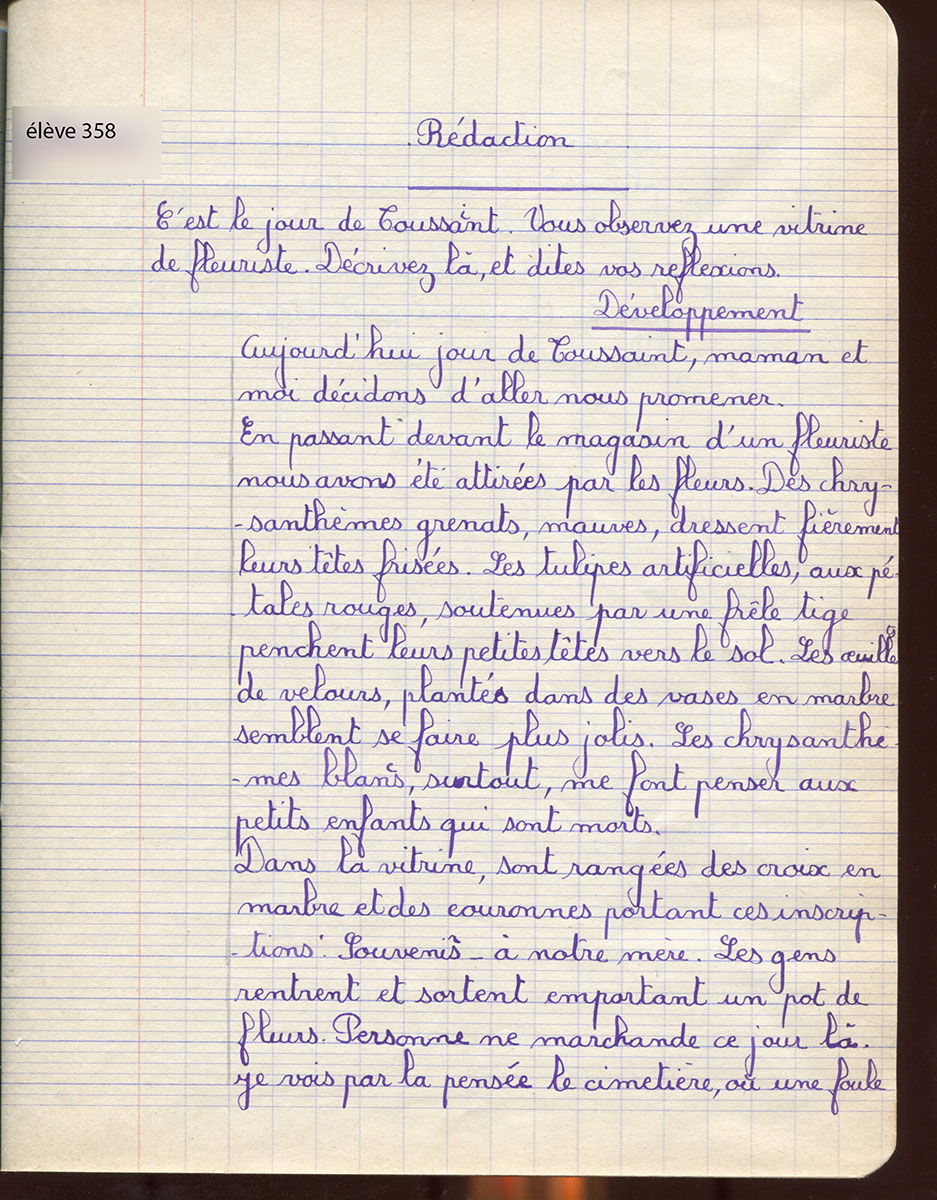 élève 358
Rédaction
C'est le jour de Toussaint. Vous observez une vitrine
de fleuriste. Décrivez là, et dites vos reflexions.
Développement
Aujourd'hui jour de Toussaint, maman et
moi décidons d'aller nous promener.
En passant devant le magasin d'un fleuriste
nous avons été attirées par les fleurs. Des chry-
-santhèmes grenats, mauves, dressent fièrement
leurs têtes frisées. Les tulipes artificielles, aux pé
-tales rouges, soutenues par une frêle tige
penchent leurs petites têtes vers le sol. Les œillets
de velours, plantés dans des vases en marbre
semblent se faire plus jolis. Les chrysanthè-
-mes blancs, surtout, me font penser aux
petits enfants qui sont morts.
Dans la vitrine, sont rangées des croix en
marbre et des couronnes portant ces inscrip-
-tions: Souvenirs - à notre mère. Les gens
rentrent et sortent emportant un pot de
fleurs. Personne ne marchande ce jour là.
Je vois par la pensée le cimetière, où une foule